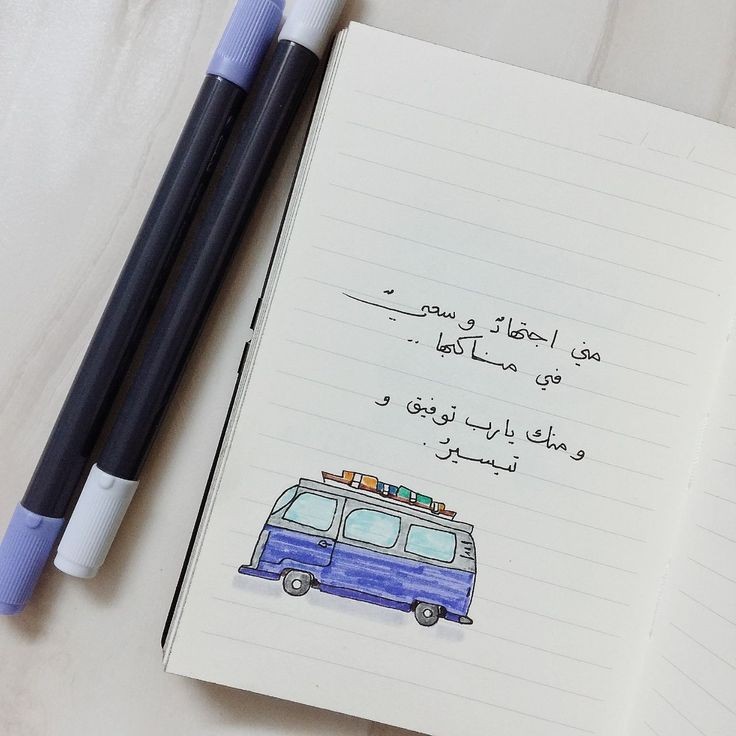 مني اجتهادٌ وسعيٌ
في مناكبها ..
ومنك يارب توفيق و
تيسيرٌ .